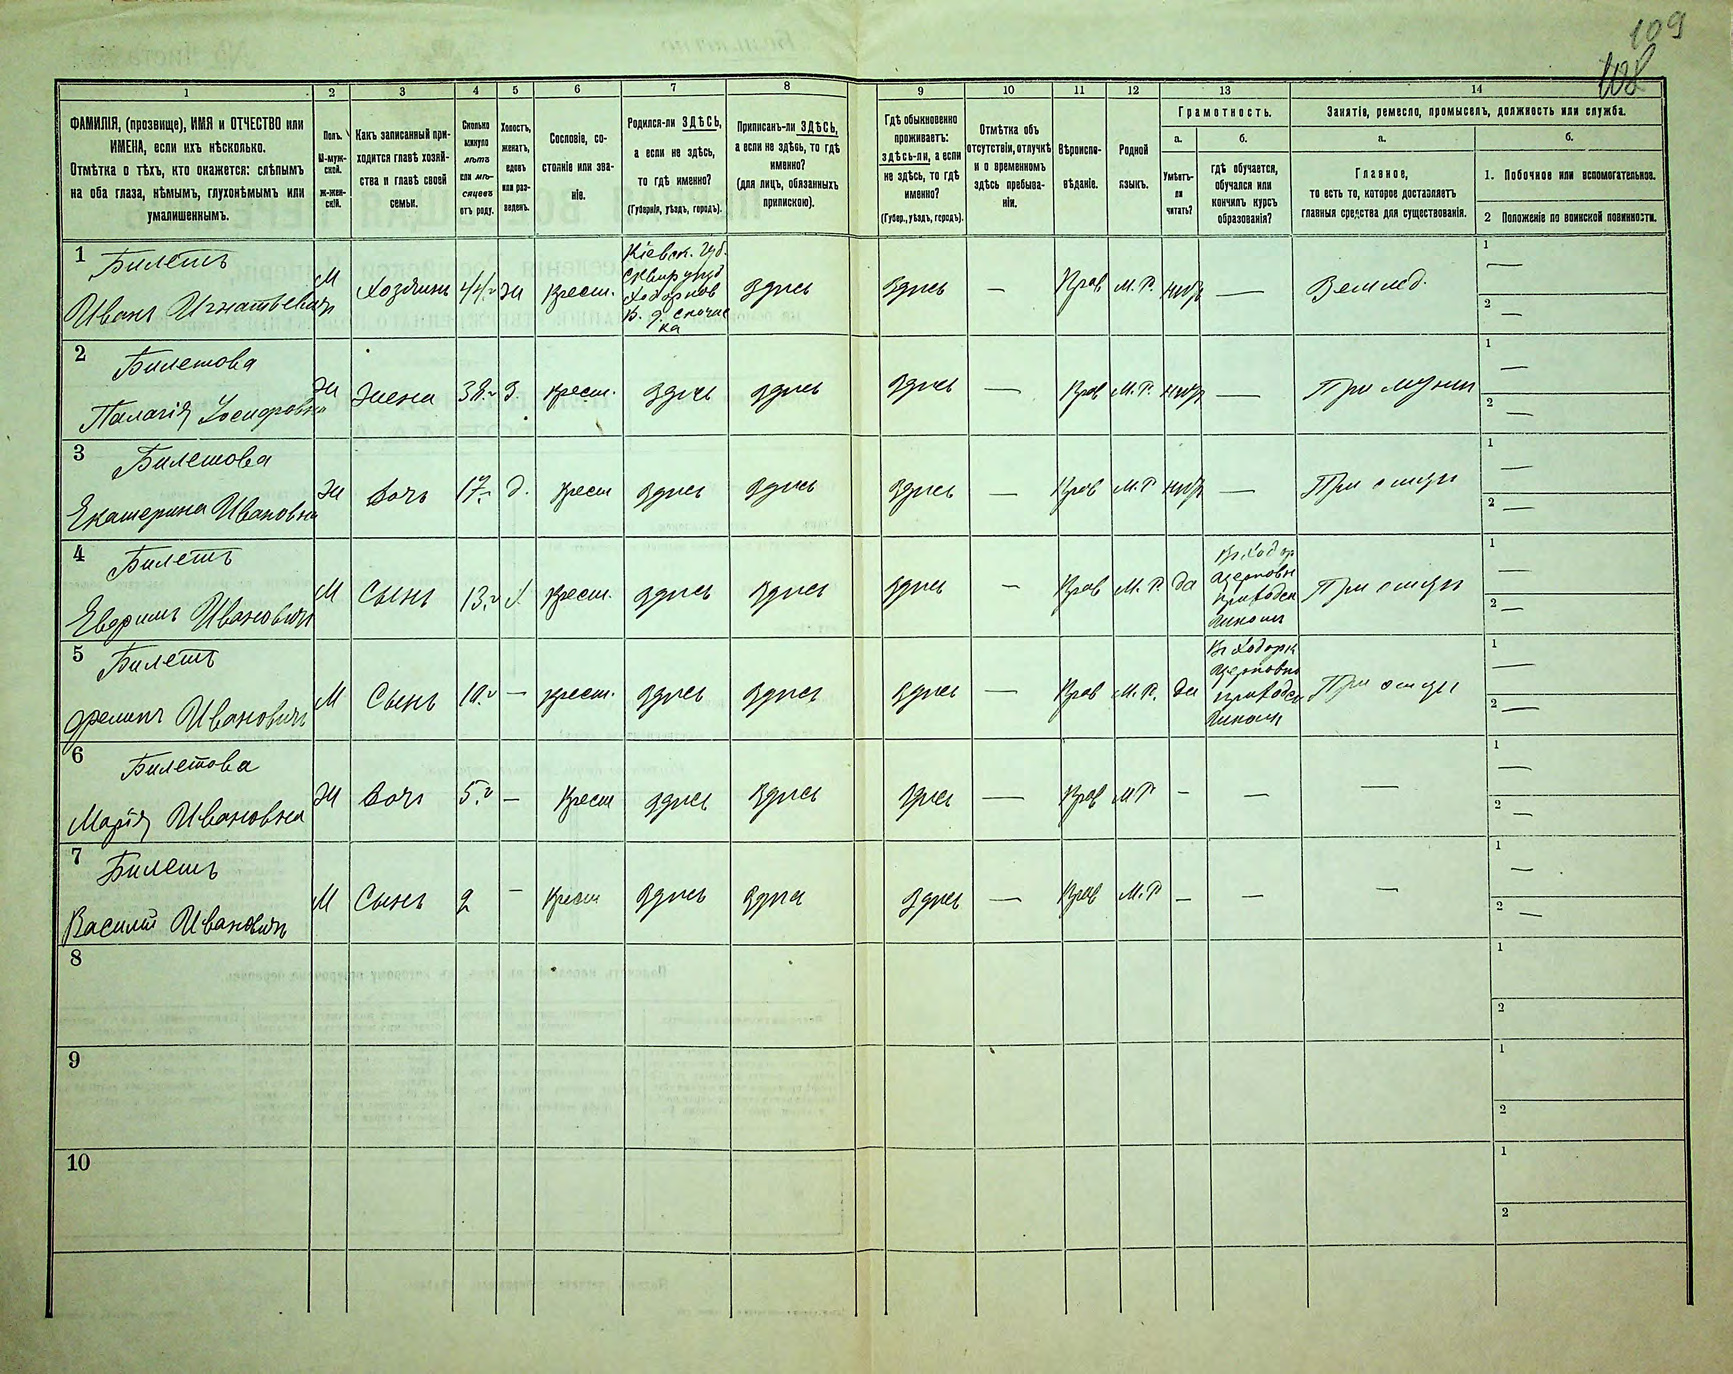 109
108
1
2
3
4
5
6
7
8
9
10
11
12
13
14
ФАМИЛІЯ, (прозвище), ИМЯ и ОТЧЕСТВО или
ИМЕНА, если ихъ нѣсколько.
Отмѣтка о тѣхъ, кто окажется: слѣпымъ
на оба глаза, нѣмымъ, глухонѣмымъ или
умалишеннымъ.
Полъ.
М-муж-
ской.
ж-жен-
скій.
Какъ записанный при-
ходится главѣ хозяй-
ства и главѣ своей
семьи.
Сколько
минуло
лѣтъ
или мѣ-
сяцевъ
отъ роду.
Холостъ,
женатъ,
вдовъ
или раз-
веденъ.
Сословіе, со-
стояніе или зва-
ніе.
Родился-ли ЗДѢСЬ,
а если не здѣсь,
то гдѣ именно?
(Губернія, уѣздъ, городъ).
Приписанъ-ли ЗДѢСЬ,
а если не здѣсь, то гдѣ
именно?
(для лицъ, обязанныхъ
припискою).
Гдѣ обыкновенно
проживаетъ:
здѣсь-ли, а если
не здѣсь, то гдѣ
именно?
(Губер., уѣздъ, городъ).
Отмѣтка объ
отсутствіи, отлучкѣ
и о временномъ
здѣсь пребыва-
ніи.
Вѣроиспо-
вѣданіе.
Родной
языкъ.
Грамотность.
а.
б.
Умѣетъ-
ли
читать?
гдѣ обучается,
обучался или
кончилъ курсъ
образованія?
Занятіе, ремесло, промыселъ, должность или служба.
а.
б.
Главное,
то есть то, которое доставляетъ
главныя средства для существованія.
1. Побочное или вспомогательное.
2 Положеніе по воинской повинности.
1
Билетъ
Иванъ Игнатьевичъ
М
Хозяинъ
44
ж
Крест.
Кіевск. Губ.
Сквир уезд
Ходорков
В.
Здись
Здись
—
Прав
М. Р.
—
Землед.
1 —
2 —
2
Билетова
Палагія Іосифовна
Ж
Жена
38
З.
Крест.
Здись
Здись
Здись
—
Прав
М. Р.
—
При мужи
1 —
2 —
3
Билетова
Екатерина Ивановна
Ж
Дочь
17
д.
Крест
Здись
Здись
Здись
—
Прав
М. Р
—
При отцы
1 —
2 —
4
Билетъ
Евфимъ Ивановичъ
М
Сынъ
13
х.
Крест.
Здись
Здись
Здись
—
Прав
М. Р.
да
Въ Ходор
церковн
приходск
школи
При отцы
1 —
2 —
5
Билетъ
Филипъ Ивановичъ
М
Сынъ
10
—
Крест.
Здись
Здись
Здись
—
Прав
М. Р.
да
Въ Ходорк
церковно
приходск
школи
При отцы
1 —
2 —
6
Билетова
Марія Ивановна
Ж
Дочь
5
—
Крест
Здись
Здись
Здись
—
Прав
М Р
—
—
—
1 —
2 —
7
Билетъ
Василій Ивановичъ
М
Сынъ
2
—
Крест
Здись
Здись
Здись
—
Прав
М. Р
—
—
—
1 —
2 —
8
1
2
9
1
2
10
1
2